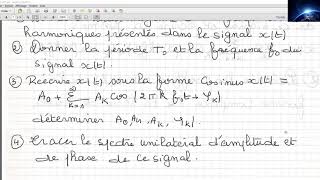 Harmoniques présentés dans le signal x(t)
② Donner la période T₀ et la fréquence f₀ du
signal x(t).
③ Réécrire x(t) sous la forme Cosinus x(t) =
A₀ + Σ Aₖ cos (2πk f₀t + φₖ)
déterminer A₀, Aₖ, φₖ.
④ Tracer le spectre unilatéral d'amplitude et
de phase de ce signal.